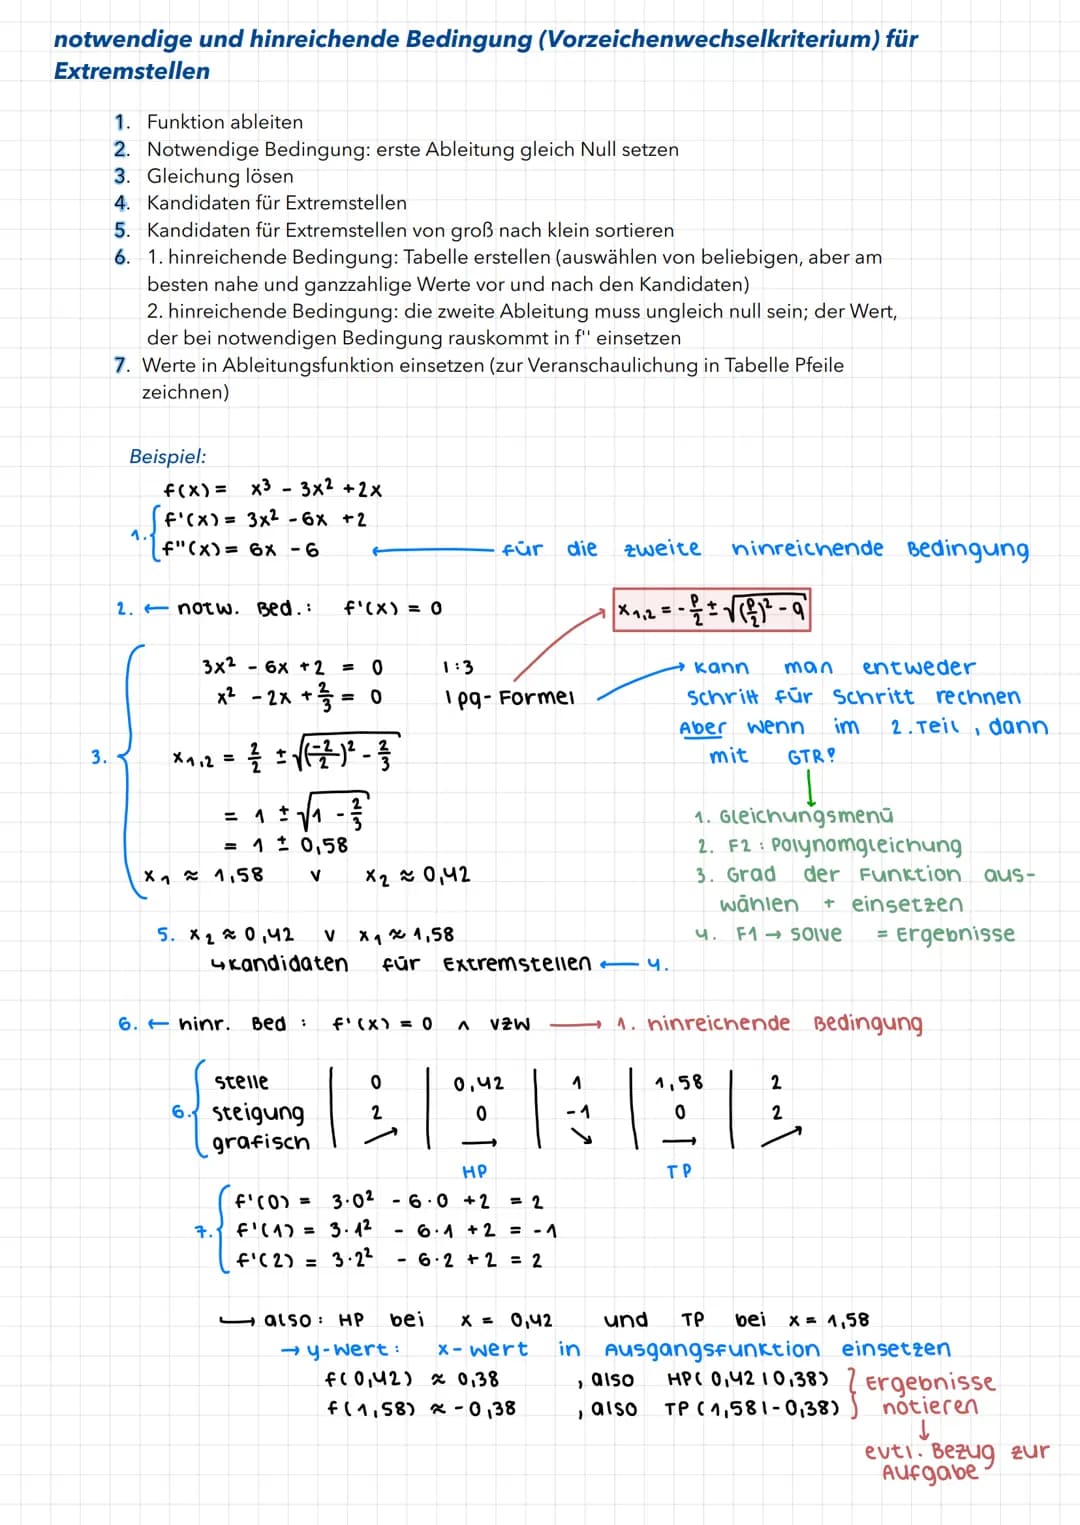 notwendige und hinreichende Bedingung (Vorzeichenwechselkriterium) für
Extremstellen
1. Funktion ableiten
2. Notwendige Bedingung: erste Ableitung gleich Null setzen
3. Gleichung lösen
4. Kandidaten für Extremstellen
5. Kandidaten für Extremstellen von groß nach klein sortieren
6. 1. hinreichende Bedingung: Tabelle erstellen (auswählen von beliebigen, aber am
besten nahe und ganzzahlige Werte vor und nach den Kandidaten)
2. hinreichende Bedingung: die zweite Ableitung muss ungleich null sein; der Wert,
der bei notwendigen Bedingung rauskommt in f'' einsetzen
7. Werte in Ableitungsfunktion einsetzen (zur Veranschaulichung in Tabelle Pfeile
zeichnen)
Beispiel:
f(x) = x³ - 3x² + 2x
1. f'(x) = 3x² - 6x + 2
f"(x) = 6x - 6 ← für die zweite hinreichende Bedingung
2. ← notw. Bed.: f'(x) = 0
x₁,₂ = -p/2 ± √((p/2)² - q)
3. 3x² - 6x + 2 = 0 | :3
x² - 2x + 2/3 = 0 | pq-Formel
→ kann man entweder
Schritt für Schritt rechnen
Aber wenn im 2. Teil, dann
mit GTR?
x₁,₂ = 2/2 ± √((-2/2)² - 2/3)
= 1 ± √(1 - 2/3)
= 1 ± 0,58
x₁ ≈ 1,58 v x₂ ≈ 0,42
↓
1. Gleichungsmenü
2. F2: Polynomgleichung
3. Grad der Funktion aus-
wählen + einsetzen
4. F1 → solve = Ergebnisse
5. x₂ ≈ 0,42 v x₁ ≈ 1,58
↳ Kandidaten für Extremstellen ← 4.
6. ← hinr. Bed: f'(x) = 0 ∧ VZW → 1. hinreichende Bedingung
6. Stelle | 0 | 0,42 | 1 | 1,58 | 2
Steigung | 2 | 0 | -1 | 0 | 2
grafisch | ↗ | → | ↘ | → | ↗
HP TP
7. f'(0) = 3·0² - 6·0 + 2 = 2
f'(1) = 3·1² - 6·1 + 2 = -1
f'(2) = 3·2² - 6·2 + 2 = 2
↪ also: HP bei x = 0,42 und TP bei x = 1,58
→ y-Wert: x-Wert in Ausgangsfunktion einsetzen
f(0,42) ≈ 0,38 , also HP(0,42|0,38)
f(1,58) ≈ -0,38 , also TP(1,58|-0,38)
Ergebnisse
notieren
↓
evtl. Bezug zur
Aufgabe